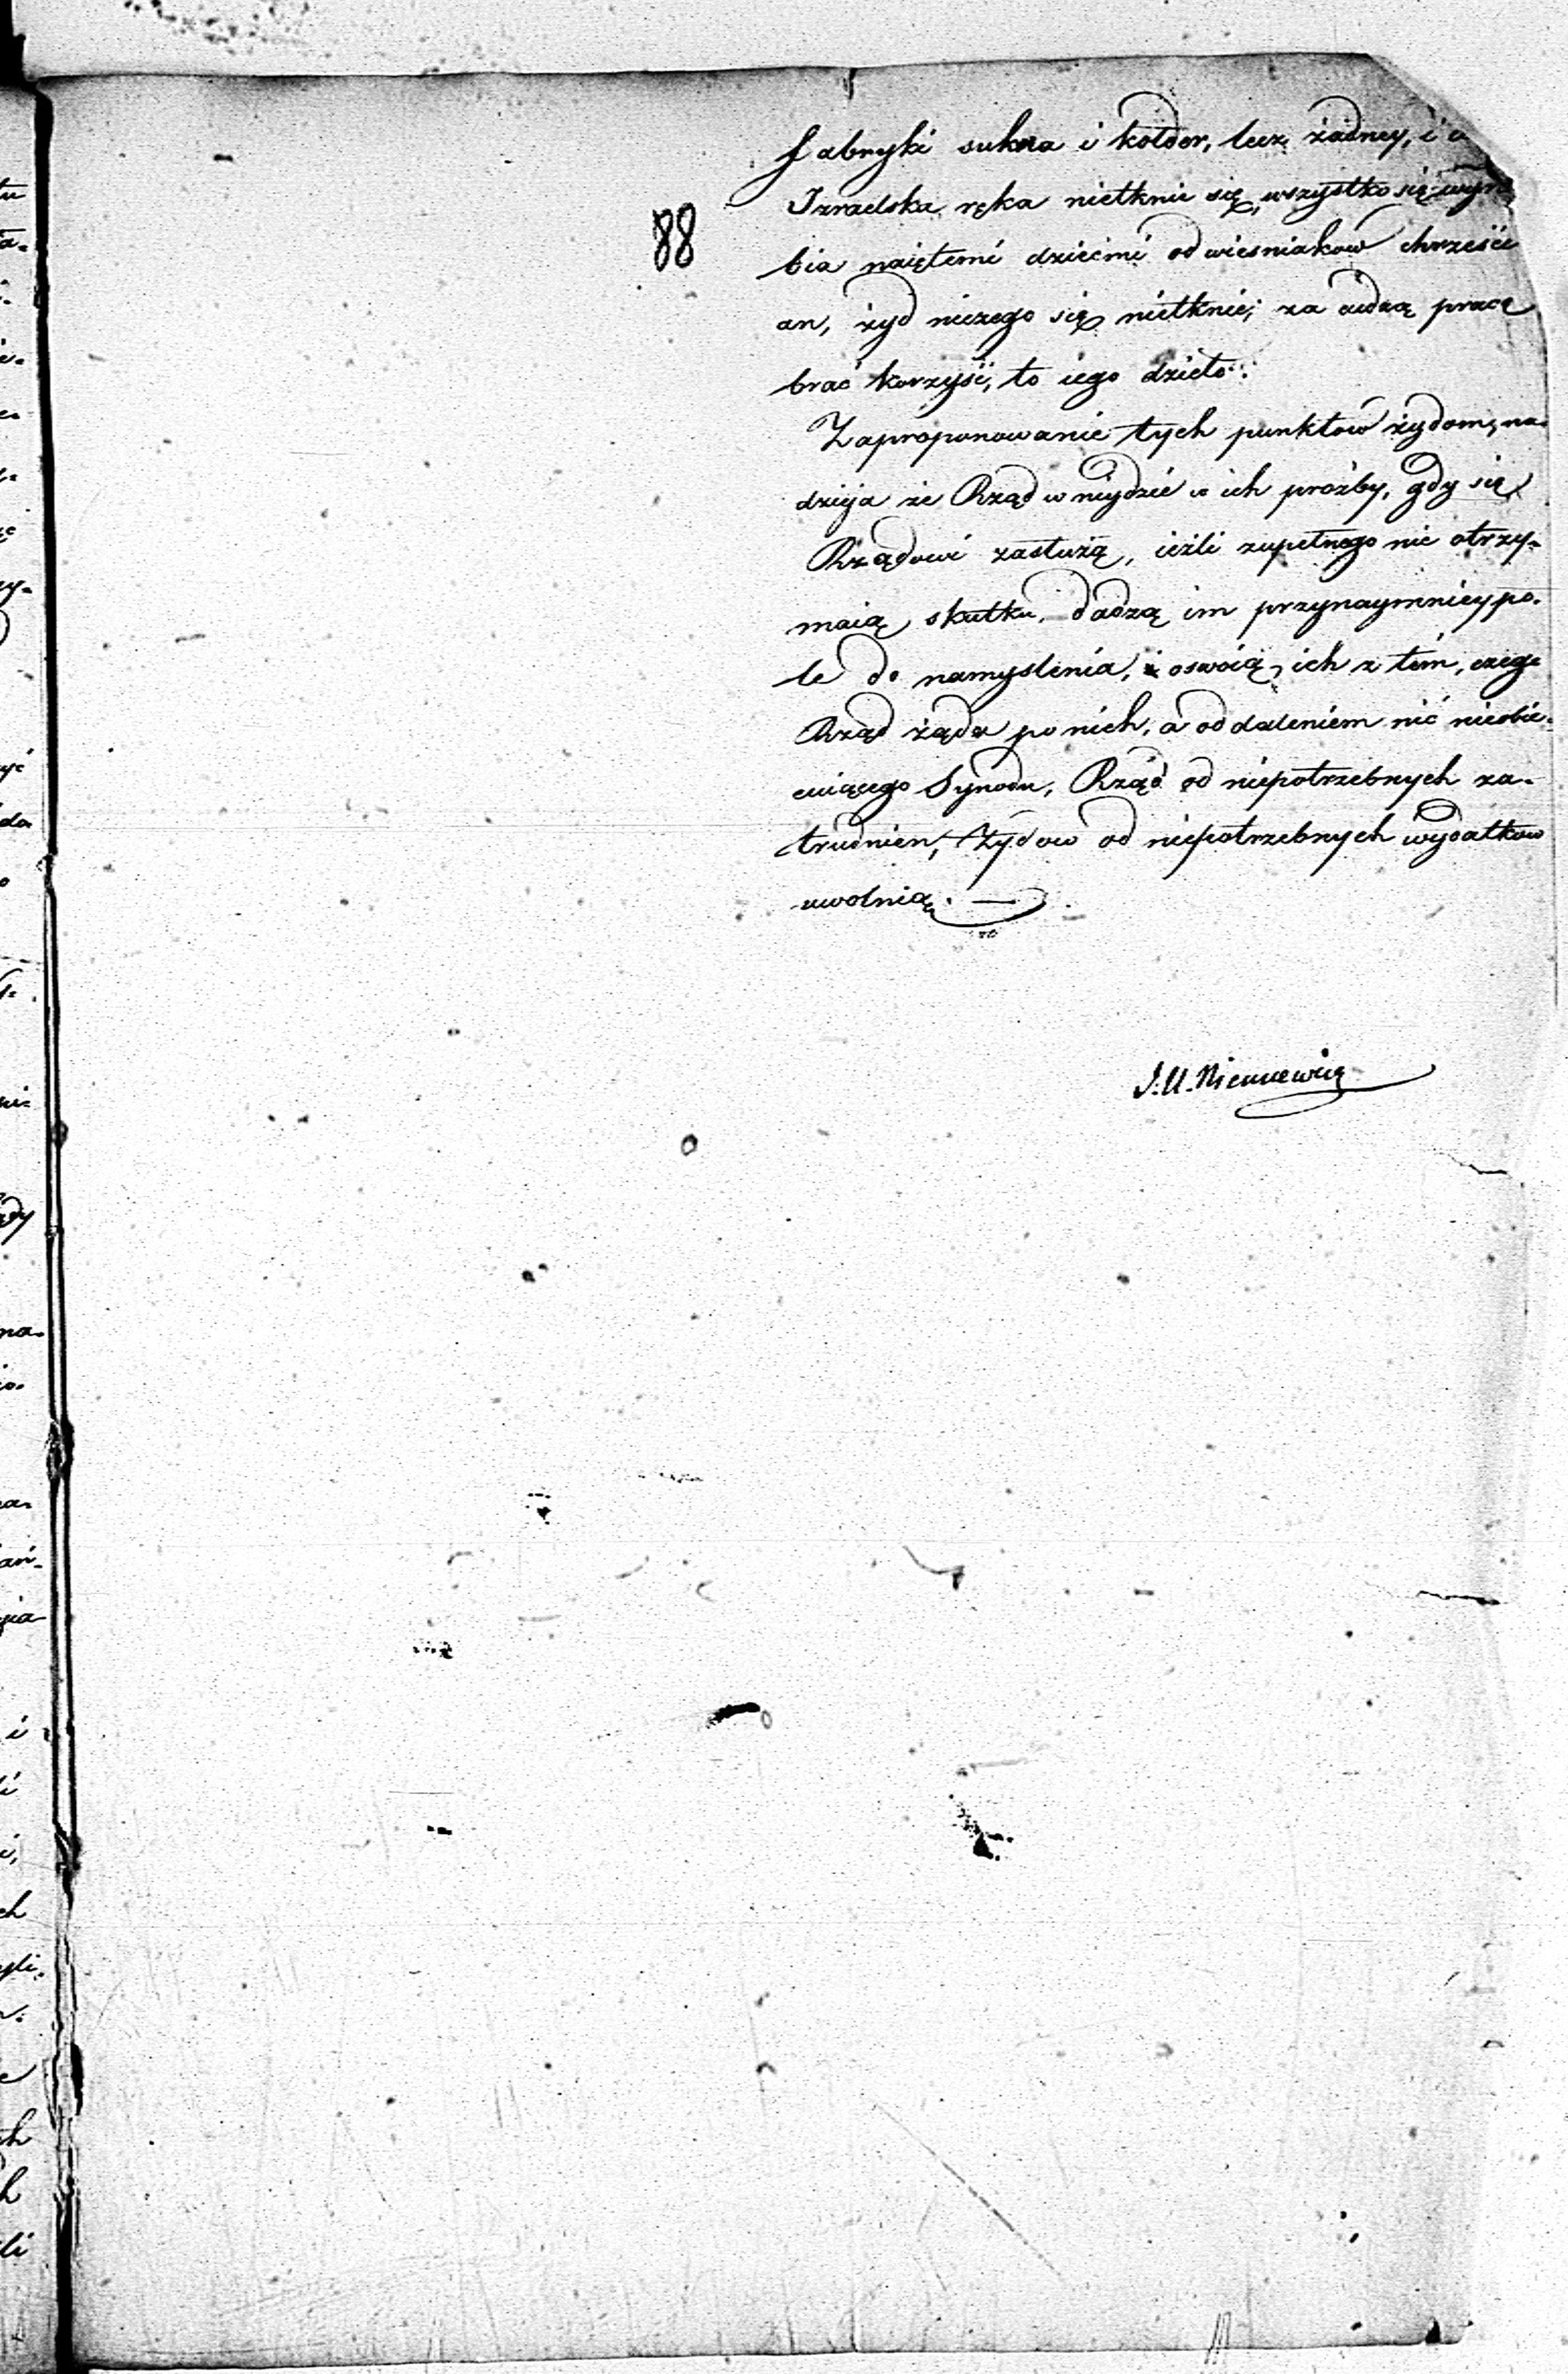 88
fabryki sukna i kołder, lecz żadney, i
Izraelska ręka nietknie się, wszystko się wyra
bia naiętemi dziećmi od wiesniakow chrześci
an, żyd niczego się nietknie; za cudzą pracę
brać korzyść, to iego dzieło.
Zaproponowanie tych punktow żydom, na-
dzieja że Rząd wniydzie w ich proźby, gdy się
Rządowi zasłużą, ieżli zupełnego nie otrzy-
maią skutku, dadzą im przynaymniey po-
le do namyslenia, oswoią ich z tém, czego
Rząd żąda po nich, a oddaleniem nic nieobie-
cuiącego Synodu, Rząd od niepotrzebnych za-
trudnien, Żydow od niepotrzebnych wydatkow
uwolnią. —
J. U. Niemcewicz